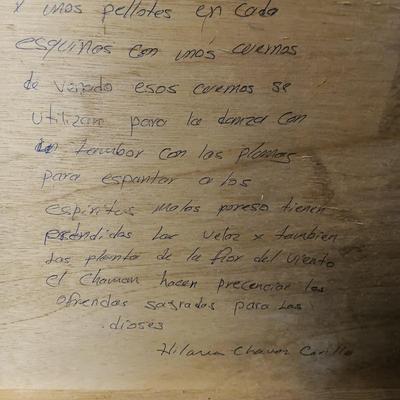 x unos pellotes en cada
esquinas con unos cuernos
de venado esos cuernos se
utilizan para la danza con
un tambor con las plumas
para espantar a los
espiritus malos poreso tienen
prendidas las velas x tambien
las planta de la flor del viento
el chaman hacen precenciar las
ofrendas sagradas para los
dioses
Hilaria Chavez Carillo